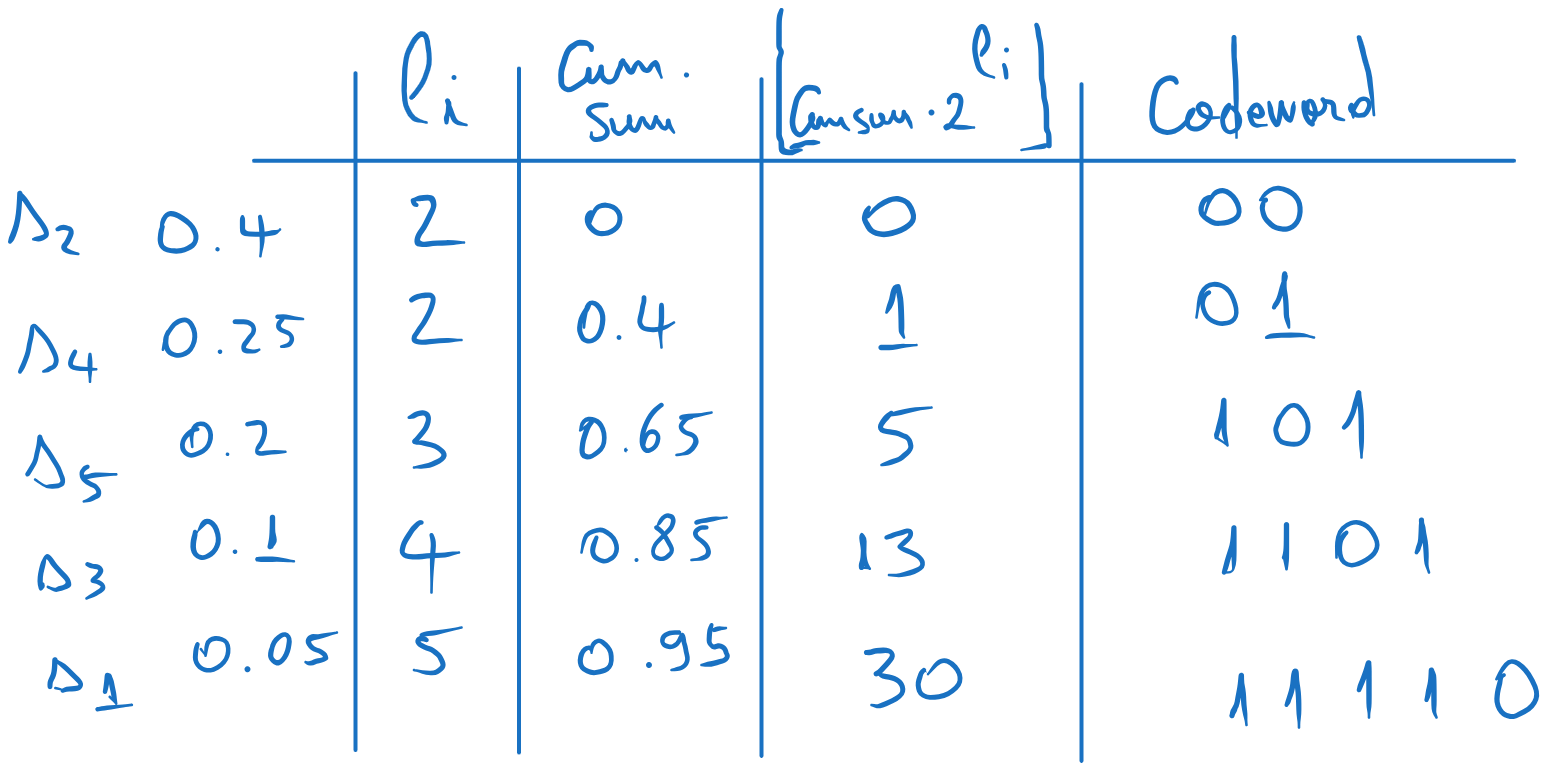 li Cum. Sum ⌊Cumsum · 2^li⌋ Codeword
s2 0.4 2 0 0 00
s4 0.25 2 0.4 1 01
s5 0.2 3 0.65 5 101
s3 0.1 4 0.85 13 1101
s1 0.05 5 0.95 30 11110